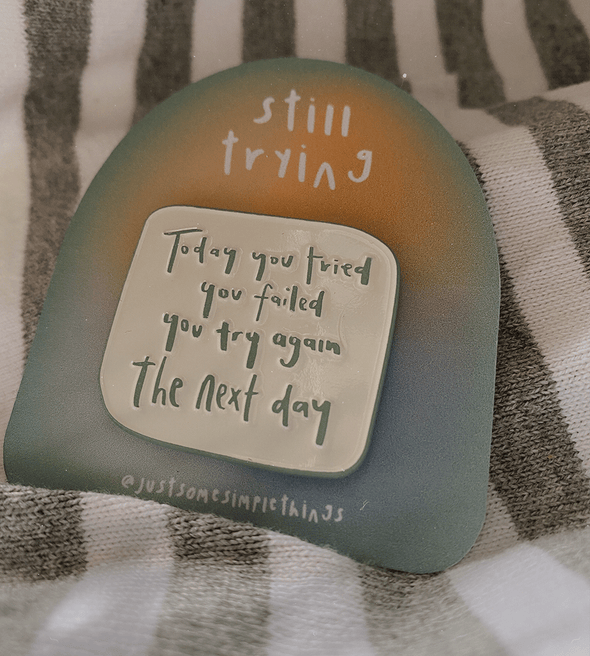 still
trying
Today you tried
you failed
you try again
the next day
@justsomesimplethings